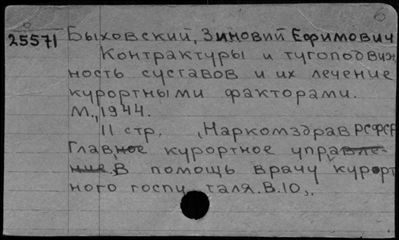 25571 Быховский, Зиновий Ефимович
Контрактуры и тугоподвиж
ность суставов и их лечение
курортными факторами.
М., 1944.
11 стр. (Наркомздрав РСФСР
Главное курортное управле-
ние. В помощь врачу курорт
ного госпиталя. В.10).